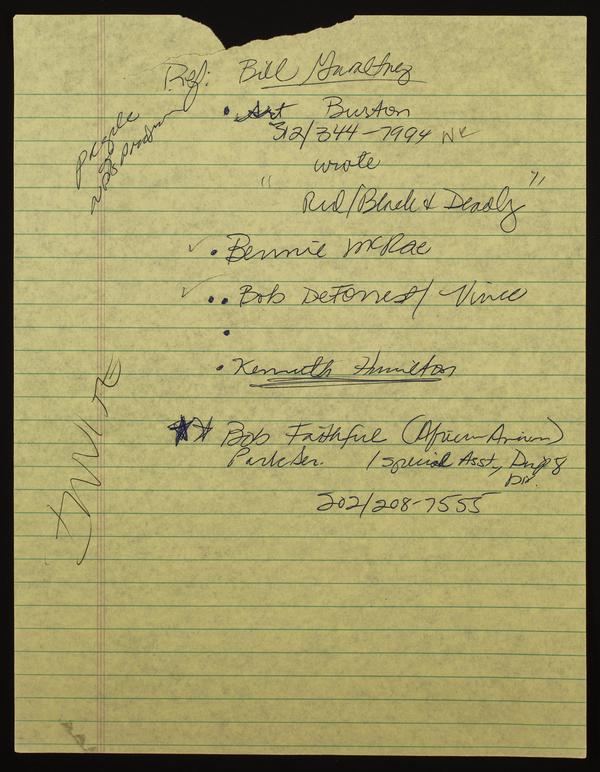 Ref: Bill Gwaltney
• Art Burton
312/344-7994 
wrote
" Red/Black & Deadly"
• Bennie McRae
•• Bob DeForrest/ Vince
•
• Kenneth Hamilton
Bob Faithful (African American)
Park Ser. / Special Asst., Dep
Dir.
202/208-7555
people
INVITE